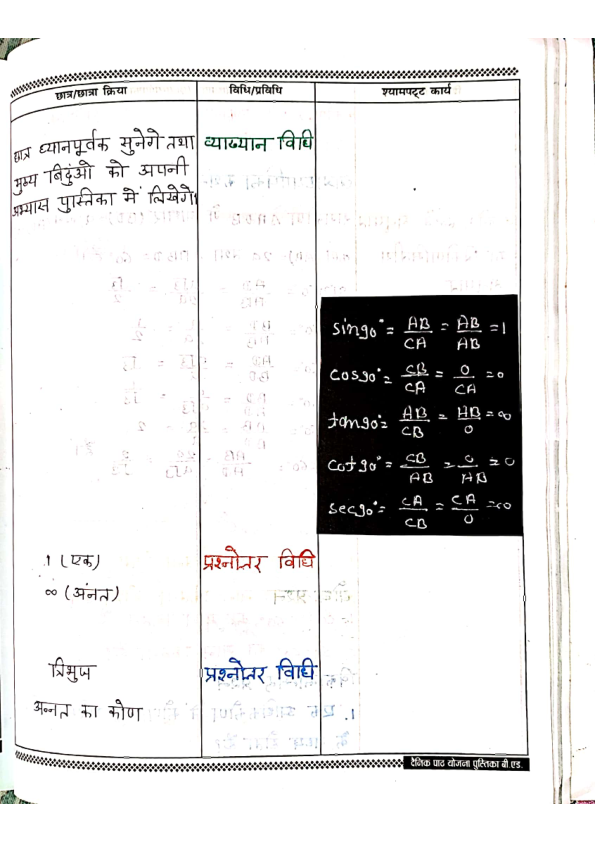 छात्र/छात्रा क्रिया विधि/प्रविधि श्यामपट्ट कार्य
छात्र ध्यानपूर्वक सुनेगे तथा व्याख्यान विधि
मुख्य बिंदुंओ को अपनी
अभ्यास पुस्तिका में लिखेगे।
sin90° = AB/CA = AB/AB = 1
cos90° = CB/CA = 0/CA = 0
tan90° = AB/CB = AB/0 = ∞
cot90° = CB/AB = 0/AB = 0
sec90° = CA/CB = CA/0 = ∞
1 (एक) प्रश्नोत्तर विधि
∞ (अंनत)
त्रिभुज प्रश्नोत्तर विधि
अन्नत का कोण
दैनिक पाठ योजना पुस्तिका बी.एड.